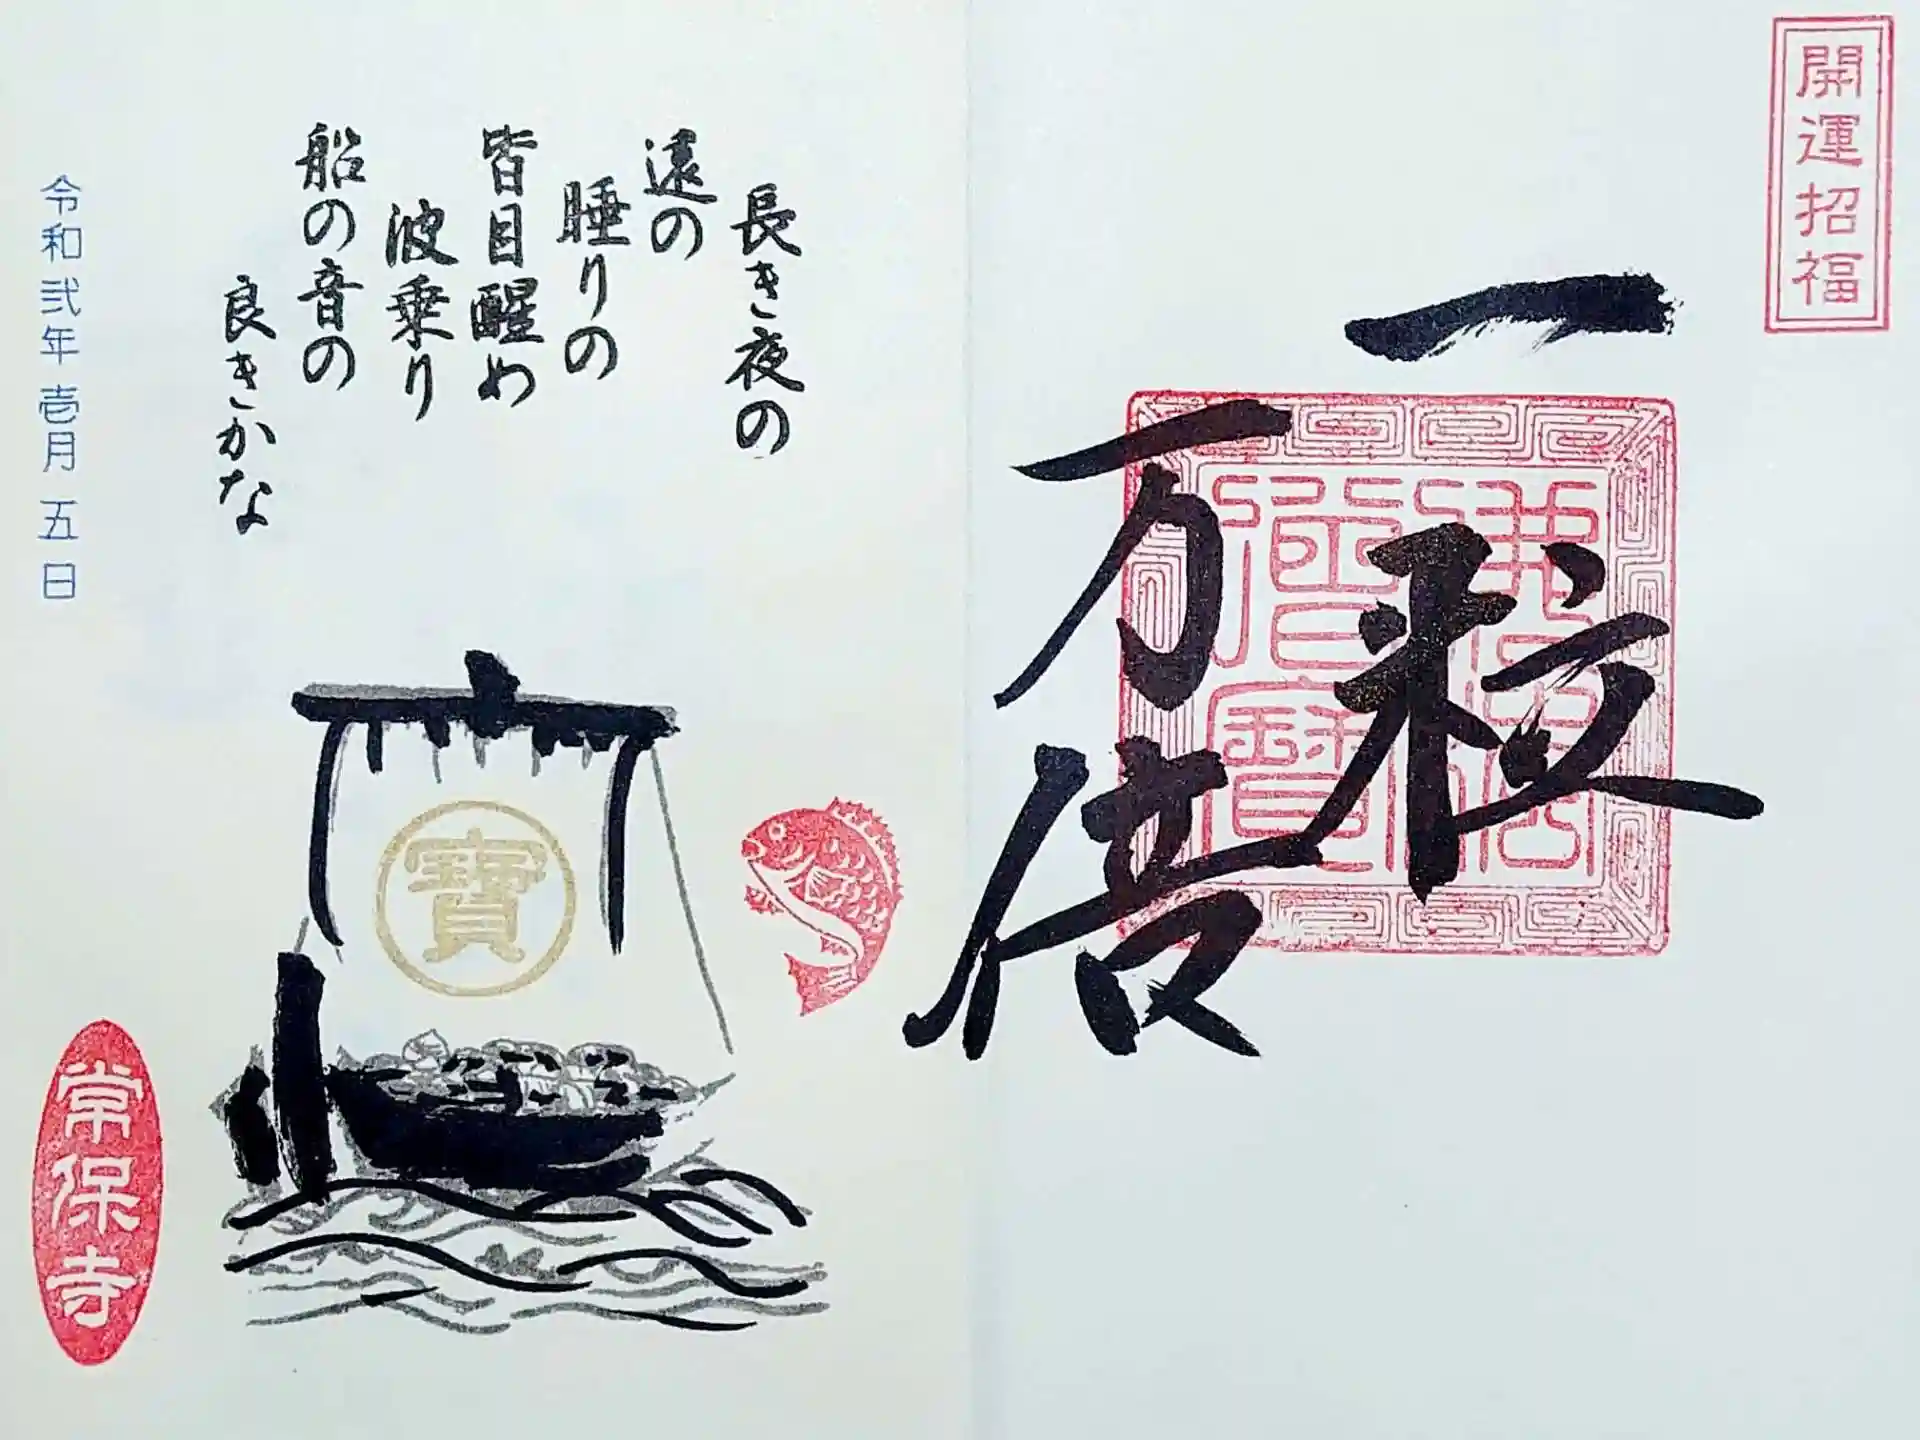 開運招福
一粒
万倍
佛法僧寶
長き夜の
遠の
睡りの
皆目醒め
波乗り
船の音の
良きかな
寶
令和弐年壱月五日
常保寺